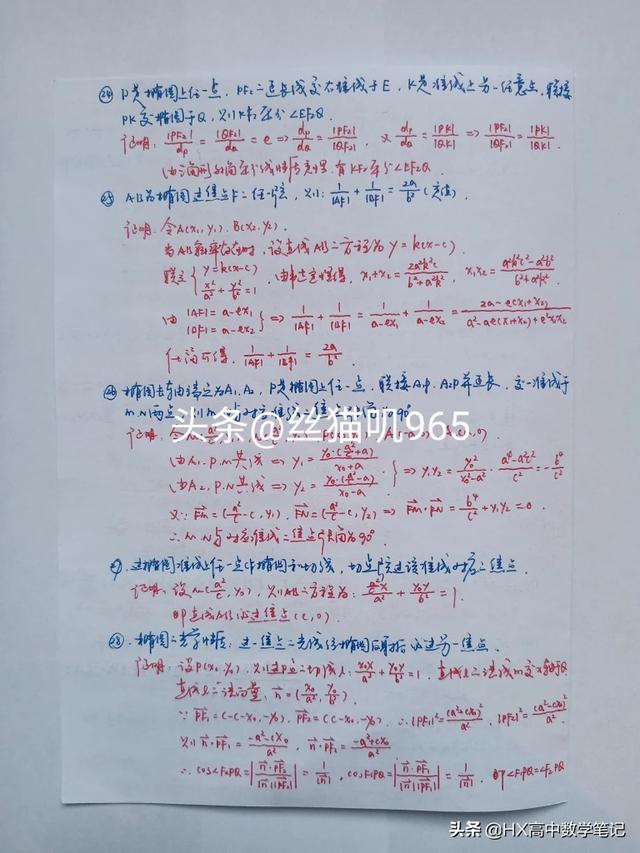 ㉔ P是椭圆上任一点，PF₂之延长线交右准线于E，K是准线上另一任意点，联接
PK交椭圆于Q，则KF₂平分∠EF₂Q.
证明：|PF₂|/dₚ = |QF₂|/d_Q = e => dₚ/d_Q = |PF₂|/|QF₂|，又 dₚ/d_Q = |PK|/|QK| => |PF₂|/|QF₂| = |PK|/|QK|.
由三角形外角平分线性质定理，有KF₂平分∠EF₂Q
㉕ AB为椭圆过焦点F之任一弦，则：1/|AF| + 1/|BF| = 2a/b² (定值)
证明：令A(x₁, y₁), B(x₂, y₂)
当AB斜率存在时，设直线AB之方程为 y = k(x-c)
联立 { y = k(x-c) x²/a² + y²/b² = 1，由韦达定理得，x₁+x₂ = 2a²k²c/(b²+a²k²)，x₁x₂ = (a²k²c²-a²b²)/(b²+a²k²)
由 |AF| = a-ex₁ |BF| = a-ex₂ } => 1/|AF| + 1/|BF| = 1/(a-ex₁) + 1/(a-ex₂) = (2a-e(x₁+x₂))/(a²-ae(x₁+x₂)+e²x₁x₂)
化简可得，1/|AF| + 1/|BF| = 2a/b².
㉖ 椭圆左右顶点为A₁, A₂，P是椭圆上任一点，联接A₁P, A₂P并延长，交一准线于
M, N两点，则M, N与对应准线之焦点
头条@丝猫叽965
证明：令
由A₁, P, M共线 => y₁ = y₀·(a²/c+a)/(x₀+a)
由A₂, P, N共线 => y₂ = y₀·(a²/c-a)/(x₀-a) } => y₁y₂ = y₀²/(x₀²-a²) · (a⁴-a²c²)/c² = -b⁴/c²
又∵ FM = (a²/c-c, y₁), FN = (a²/c-c, y₂) => FM·FN = b⁴/c² + y₁y₂ = 0.
∴ M, N与对应准线之焦点张角为90°.
㉗ 过椭圆准线上任一点作椭圆之切线，切点弦过该准线对应之焦点.
证明：设M(a²/c, y₀)，则AB之方程为：(a²/c)x/a² + y₀y/b² = 1.
即直线AB必过焦点(c, 0)
㉘ 椭圆之光学性质：过一焦点之光线经椭圆反射后必过另一焦点.
证明：设P(x₀, y₀)，则过P之切线l：x₀x/a² + y₀y/b² = 1. 直线l之法线交x轴于Q
直线l之法向量：n = (x₀/a², y₀/b²).
∵ PF₁ = (-c-x₀, -y₀), PF₂ = (c-x₀, -y₀) ∴ |PF₁|² = (a²+cx₀)²/a², |PF₂|² = (a²-cx₀)²/a².
则 n·PF₁ = (-a²-cx₀)/a², n·PF₂ = (-a²+cx₀)/a²
∴ cos∠F₂PQ = |n·PF₂/(|n||PF₂|)| = 1/|n|, cos∠F₁PQ = |n·PF₁/(|n||PF₁|)| = 1/|n|. 即∠F₁PQ=∠F₂PQ
头条@HX高中数学笔记